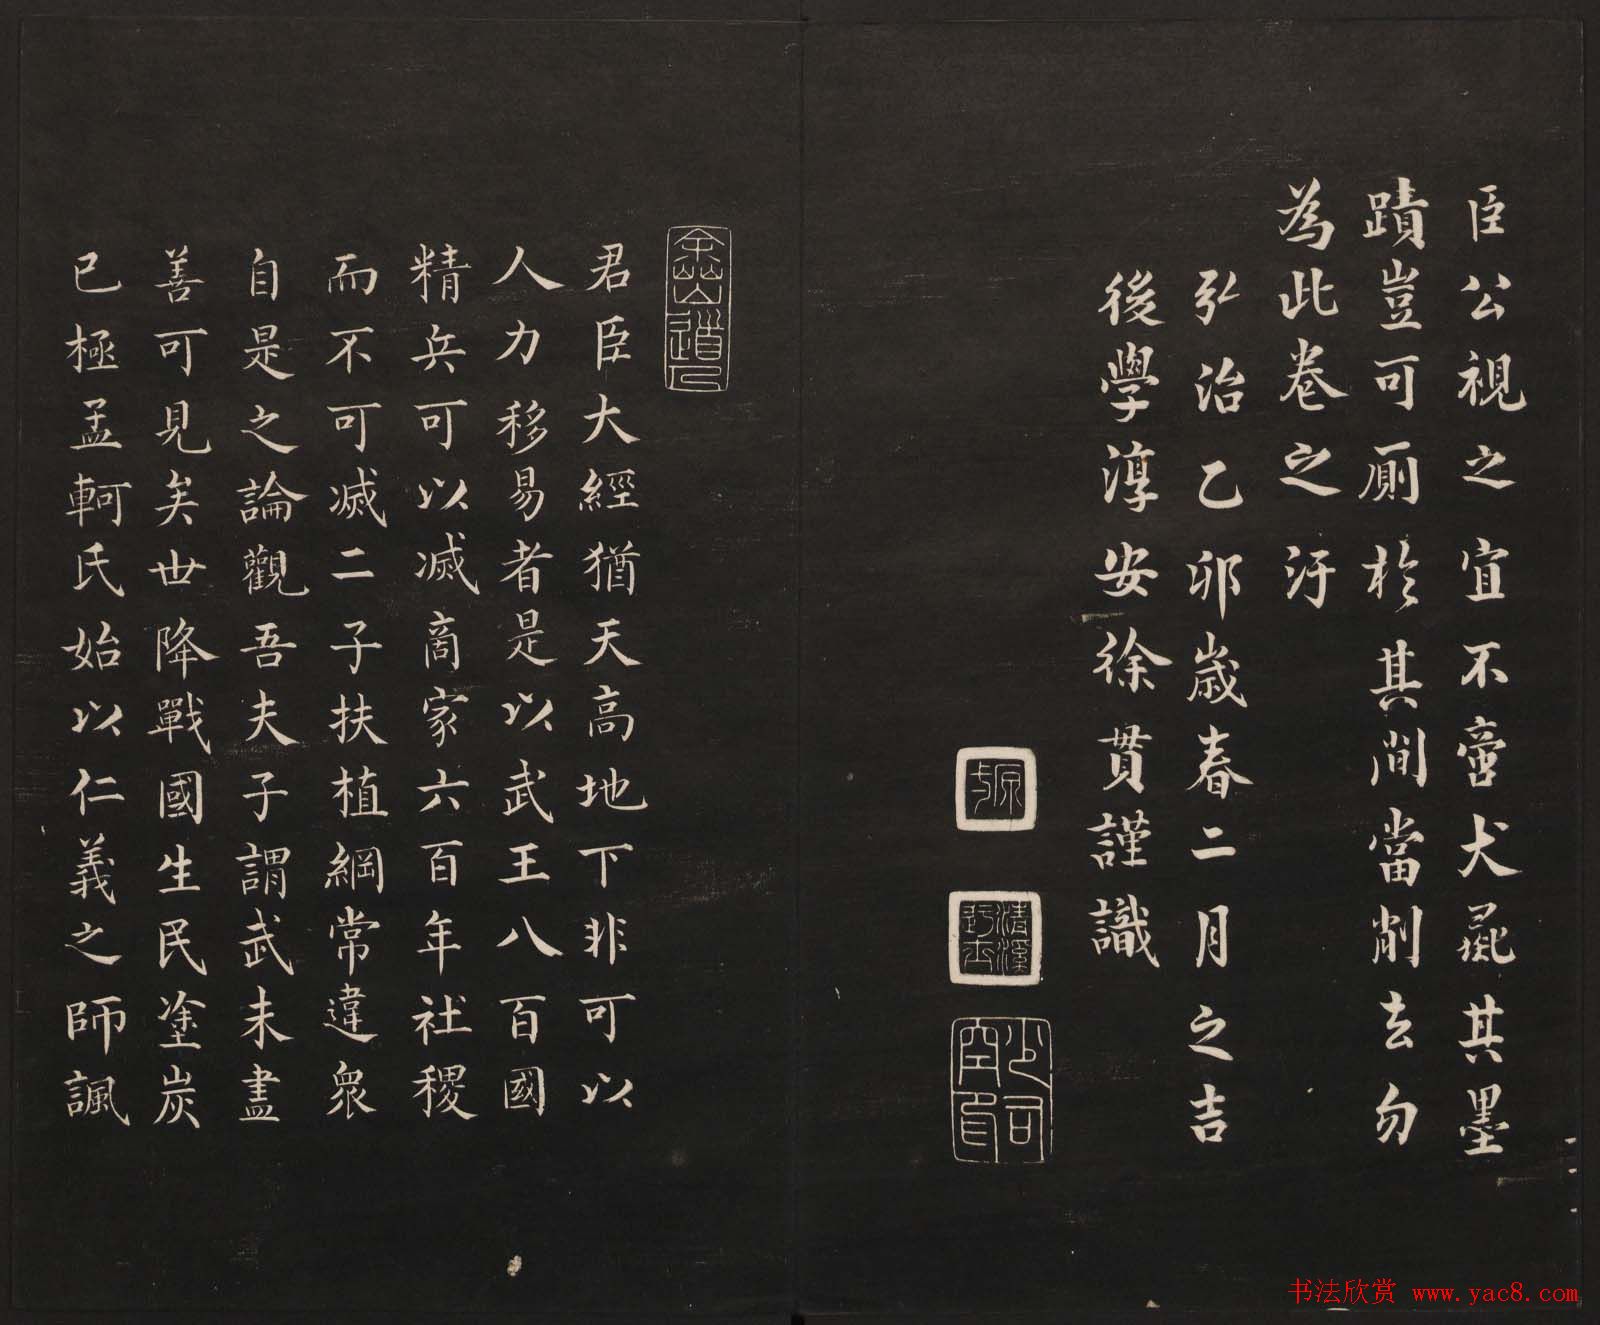 臣公視之宜不啻犬彘其墨
蹟豈可厠於其間當削去勿
為此卷之汙
弘治乙卯歲春二月之吉
後學淳安徐貫謹識
清溪
少司空印
君臣大經猶天高地下非可以
人力移易者是以武王八百國
精兵可以滅商家六百年社稷
而不可滅二子扶植綱常違衆
自是之論觀吾夫子謂武未盡
善可見矣世降戰國生民塗炭
已極孟軻氏始以仁義之師諷
书法欣赏 www.yac8.com